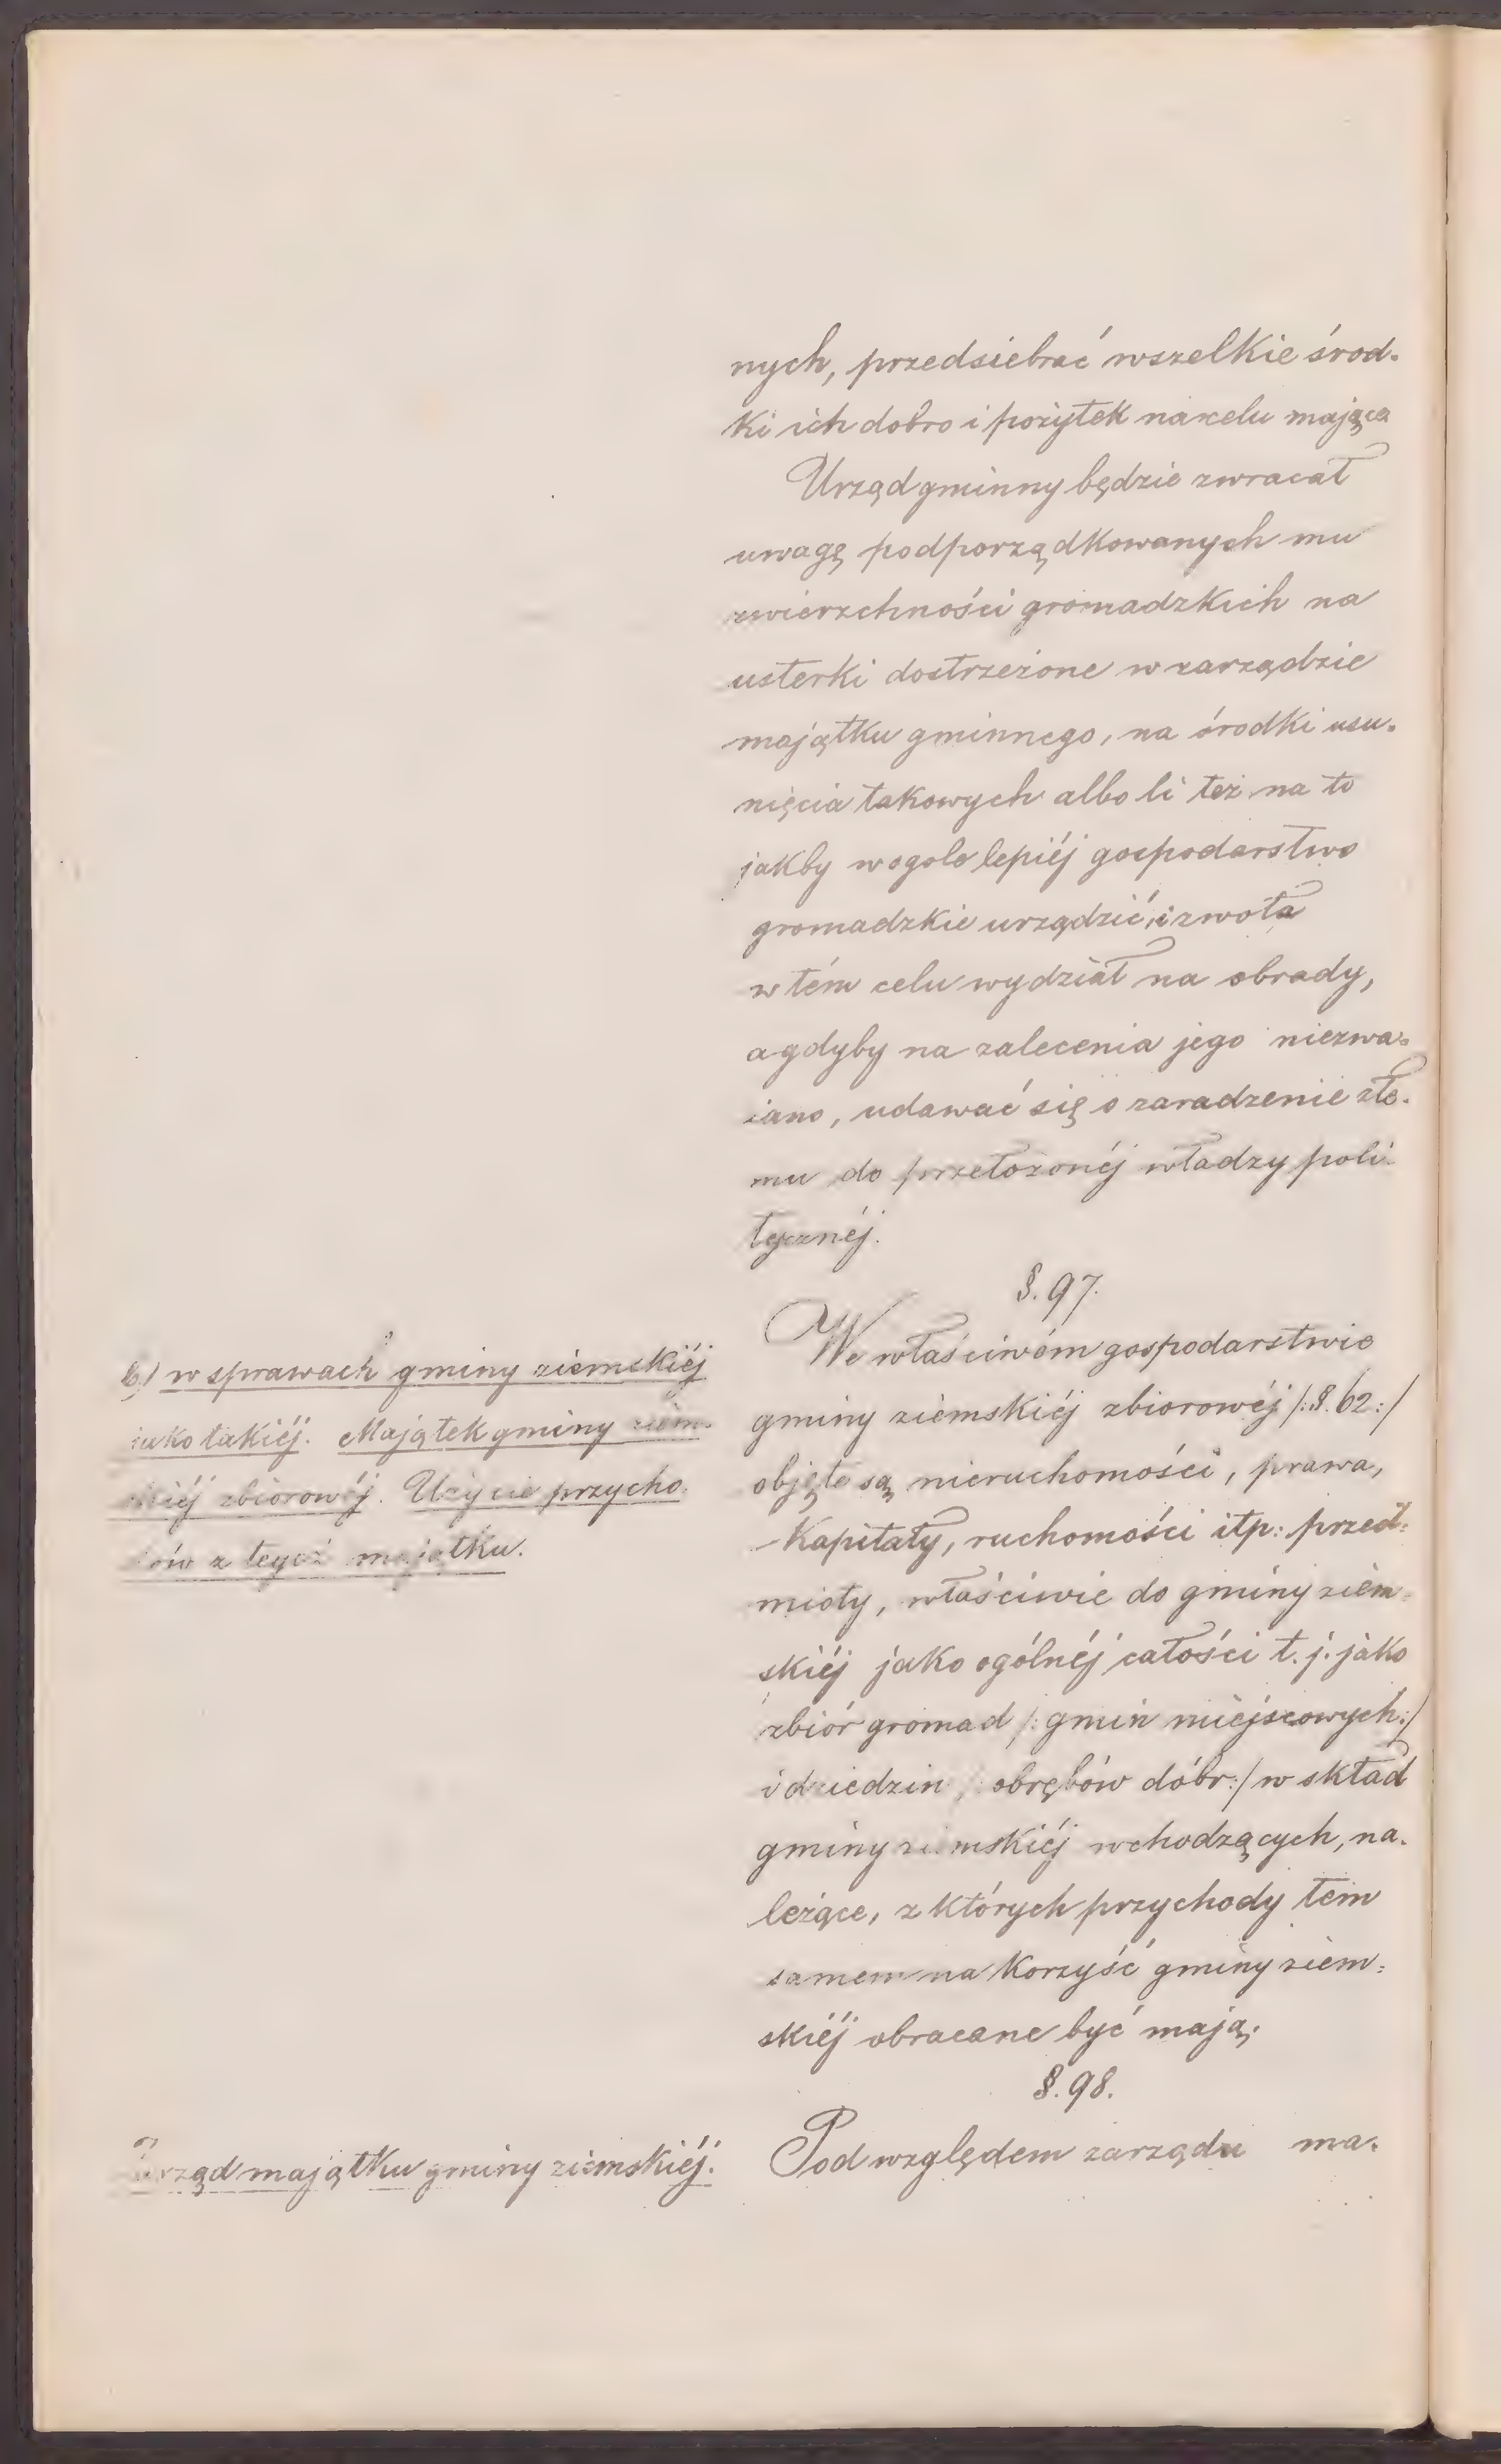 nych, przedsiebrać wszelkie środ-
ki ich dobro i pożytek na celu mające
Urząd gminny będzie zwracał
uwagę podporządkowanych mu
zwierzchności gromadzkich na
usterki dostrzeżone w zarządzie
majątku gminnego, na środki usu-
nięcia takowych albo li też na to
jakby wogole lepiéj gospodarstwo
gromadzkie urządzić, i zwoła
w tém celu wydział na obrady,
a gdyby na zalecenia jego niezwa-
żano, udawać się o zaradzenie złe-
mu do przełożonéj władzy poli-
tycznéj.
§. 97.
b) w sprawach gminy ziemskiéj
jako takiéj. Majątek gminy ziem-
skiéj zbiorowéj. Użycie przycho-
dów z tegoż majątku.
We właściwém gospodarstwie
gminy ziemskiéj zbiorowéj /:§. 62:/
objęte są nieruchomości, prawa,
Kapitały, ruchomości itp: przed-
mioty, właściwie do gminy ziem-
skiéj jako ogólnéj całości t. j. jako
zbiór gromad /: gmin miejscowych:/
i dziedzin /: obrębów dóbr:/ w skład
gminy ziemskiéj wchodzących, na-
leżące, z których przychody tem
samem na Korzyść gminy ziem-
skiéj obracane być mają.
§. 98.
Zarząd majątku gminy ziemskiéj.
Pod względem zarządu ma-